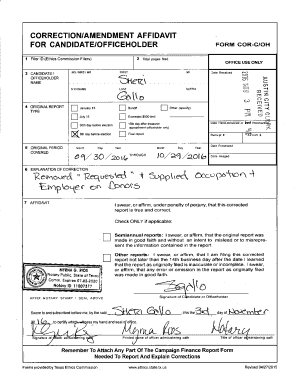 CORRECTION/AMENDMENT AFFIDAVIT
FOR CANDIDATE/OFFICEHOLDER
FORM COR-C/OH
1 Filer ID (Ethics Commission Filers)
2 Total pages filed:
OFFICE USE ONLY
3 CANDIDATE / OFFICEHOLDER NAME
MS / MRS / MR
FIRST
MI
Sheri
NICKNAME
LAST
SUFFIX
Gallo
Date Received
AUSTIN CITY CLERK
RECEIVED
4 ORIGINAL REPORT TYPE
January 15
July 15
30th day before election
8th day before election
Runoff
Exceeded $500 limit
15th day after treasurer appointment (officeholder only)
Final report
Other (specify)
Date Hand-delivered or
Receipt #
Amount $
Date Processed
Date Imaged
5 ORIGINAL PERIOD COVERED
Month Day Year
09/30/2016 THROUGH 10/29/2016
6 EXPLANATION OF CORRECTION
Removed "Requested" + Supplied Occupation +
Employer on Donors
7 AFFIDAVIT
I swear, or affirm, under penalty of perjury, that this corrected
report is true and correct.
Check ONLY if applicable:
Semiannual reports: I swear, or affirm, that the original report was
made in good faith and without an intent to mislead or to misrepre-
sent the information contained in the report.
Other reports: I swear, or affirm, that I am filing this corrected
report not later than the 14th business day after the date I learned
that the report as originally filed is inaccurate or incomplete. I swear,
or affirm, that any error or omission in the report as originally filed
was made in good faith.
MYRNA G. RIOS
Notary Public, State of Texas
AFFIX NOTARY STAMP / SEAL ABOVE
Signature of Candidate or Officeholder
Sworn to and subscribed before me, by the said Sheri Gallo this the 3rd day of November
20 16, to certify which, witness my hand and seal of office.
Myrna Rios
Notary
Signature of officer administering oath
Printed name of officer administering oath
Title of officer administering oath
Remember To Attach Any Part Of The Campaign Finance Report Form
Needed To Report And Explain Corrections
Forms provided by Texas Ethics Commission
www.ethics.state.tx.us
Revised 04/27/2015